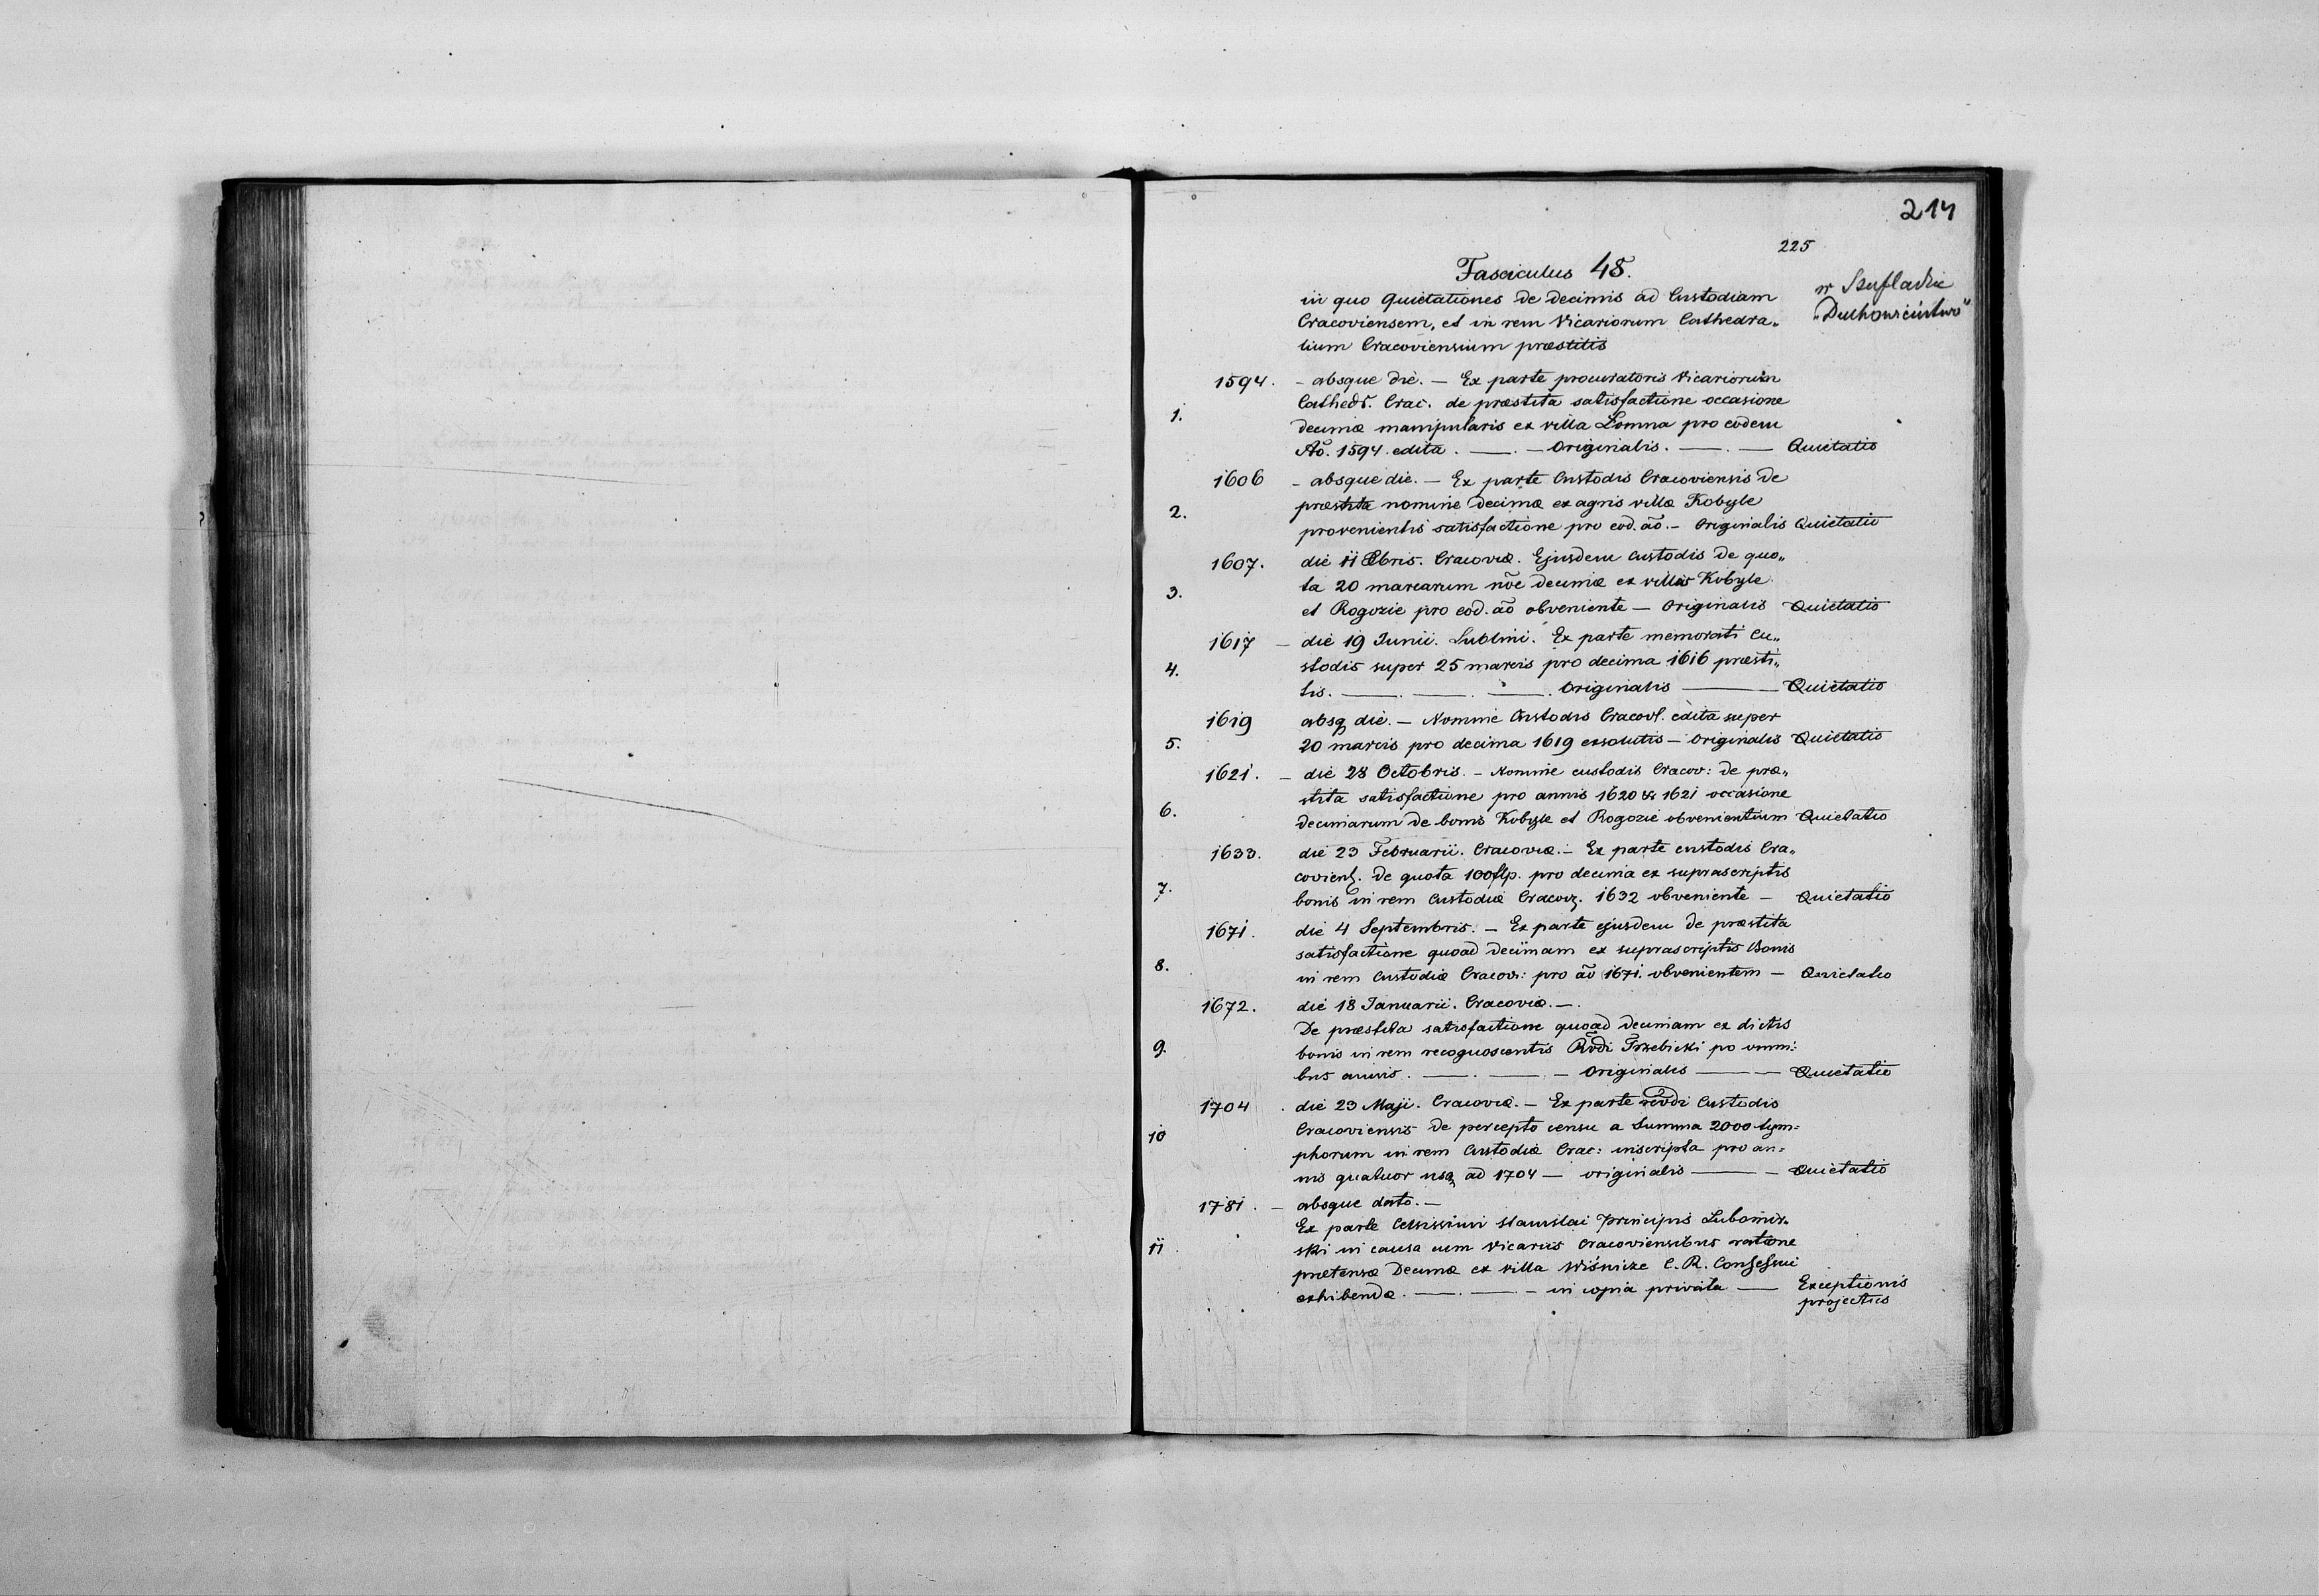 214
225
Fasciculus 48.
w Szufladzie
„Duchowieństwo"
in quo Quietationes de decimis ad Custodiam
Cracoviensem, et in rem Vicariorum Cathedra„
lium Cracoviensium præstitis
1594. - absque die. — Ex parte procuratoris Vicariorum
Cathedr. Crac. de præstita satisfactione occasione
1. decimæ manipularis ex villa Łomna pro eodem
Aõ. 1594 edita. —. — Originalis. —. — Quietatio
1606 - absque die. — Ex parte Custodis Cracoviensis de
præstita nomine decimæ ex agris villæ Kobyle
2. provenientis satisfactione pro eod. ão. - Originalis Quietatio
1607. die 11 Xbris. Cracoviæ. Ejusdem custodis de quo„
ta 20 marcarum nõe decimæ ex villis Kobyle
3. et Rogozie pro eod. ão obveniente — Originalis Quietatio
1617 — die 19 Junii. Lublini. Ex parte memorati Cu„
4. stodis super 25 marcis pro decima 1616 præsti„
tis. —. —. —. Originalis — Quietatio
1619 absq die. — Nomine Custodis Cracov. edita super
5. 20 marcis pro decima 1619 exsolutis — Originalis Quietatio
1621. — die 28 Octobris. - Nomine custodis Cracov: de præ„
stita satisfactione pro annis 1620 & 1621 occasione
6. decimarum de bonis Kobyle et Rogozie obvenientium Quietatio
1633. die 23 Februarii. Cracoviæ. — Ex parte custodis Cra„
coviens. de quota 100 flp. pro decima ex suprascriptis
7. bonis in rem Custodiæ Cracov. 1632 obveniente — Quietatio
1671. die 4 Septembris. — Ex parte ejusdem de præstita
satisfactione quoad decimam ex suprascriptis Bonis
8. in rem Custodiæ Cracov: pro ão 1671. obvenientem — Quietatio
1672. die 18 Januarii. Cracoviæ. —.
De præstita satisfactione quoad decimam ex dictis
9. bonis in rem recognoscentis Rvdi Trzebicki po omni:
bus annis. —. — — Originalis — Quietatio
1704 . die 23 Maji. Cracoviæ. — Ex parte revdi Custodis
10 Cracoviensis de percepto censu a Summa 2000 tym=
phorum in rem Custodiæ Crac: inscripta pro an=
nis quatuor usq ad 1704 — originalis — — Quietatio
1781. — absque dato. —
Ex parte Celsissimi Stanislai Principis Lubomir„
11. ski in causa cum Vicariis Cracoviensibus ratione
prætensæ Decimæ ex villa Wiśnicze C. R. Consessui
exhibendæ. —. — — in copia privata — Exceptionis
projectus